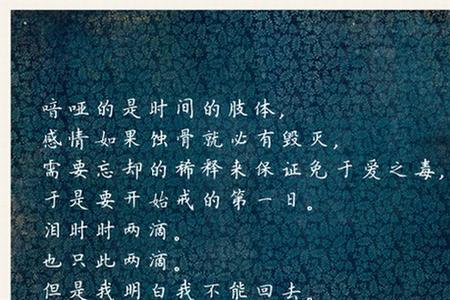 喑哑的是时间的肢体，
感情如果蚀骨就必有毁灭，
需要忘却的稀释来保证免于爱之毒，
于是要开始戒的第一日。
泪时时两滴。
也只此两滴。
但是我明白我不能回去。